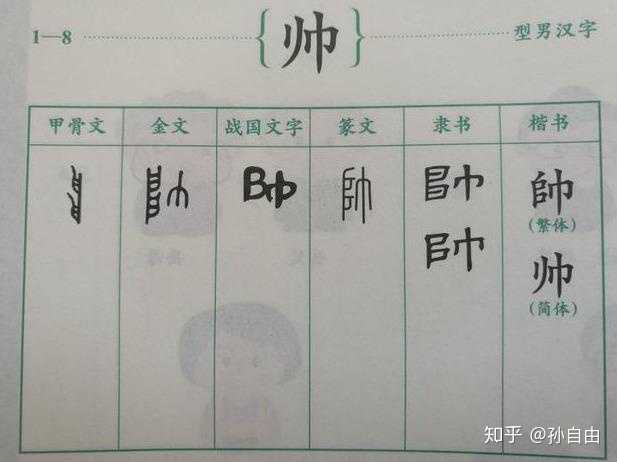 1—8 {帅} 型男汉字
甲骨文 金文 战国文字 篆文 隶书 楷书
帥 帥 帥 帥 帥
(繁体)
帥 帅
(简体)
知乎 @孙自由